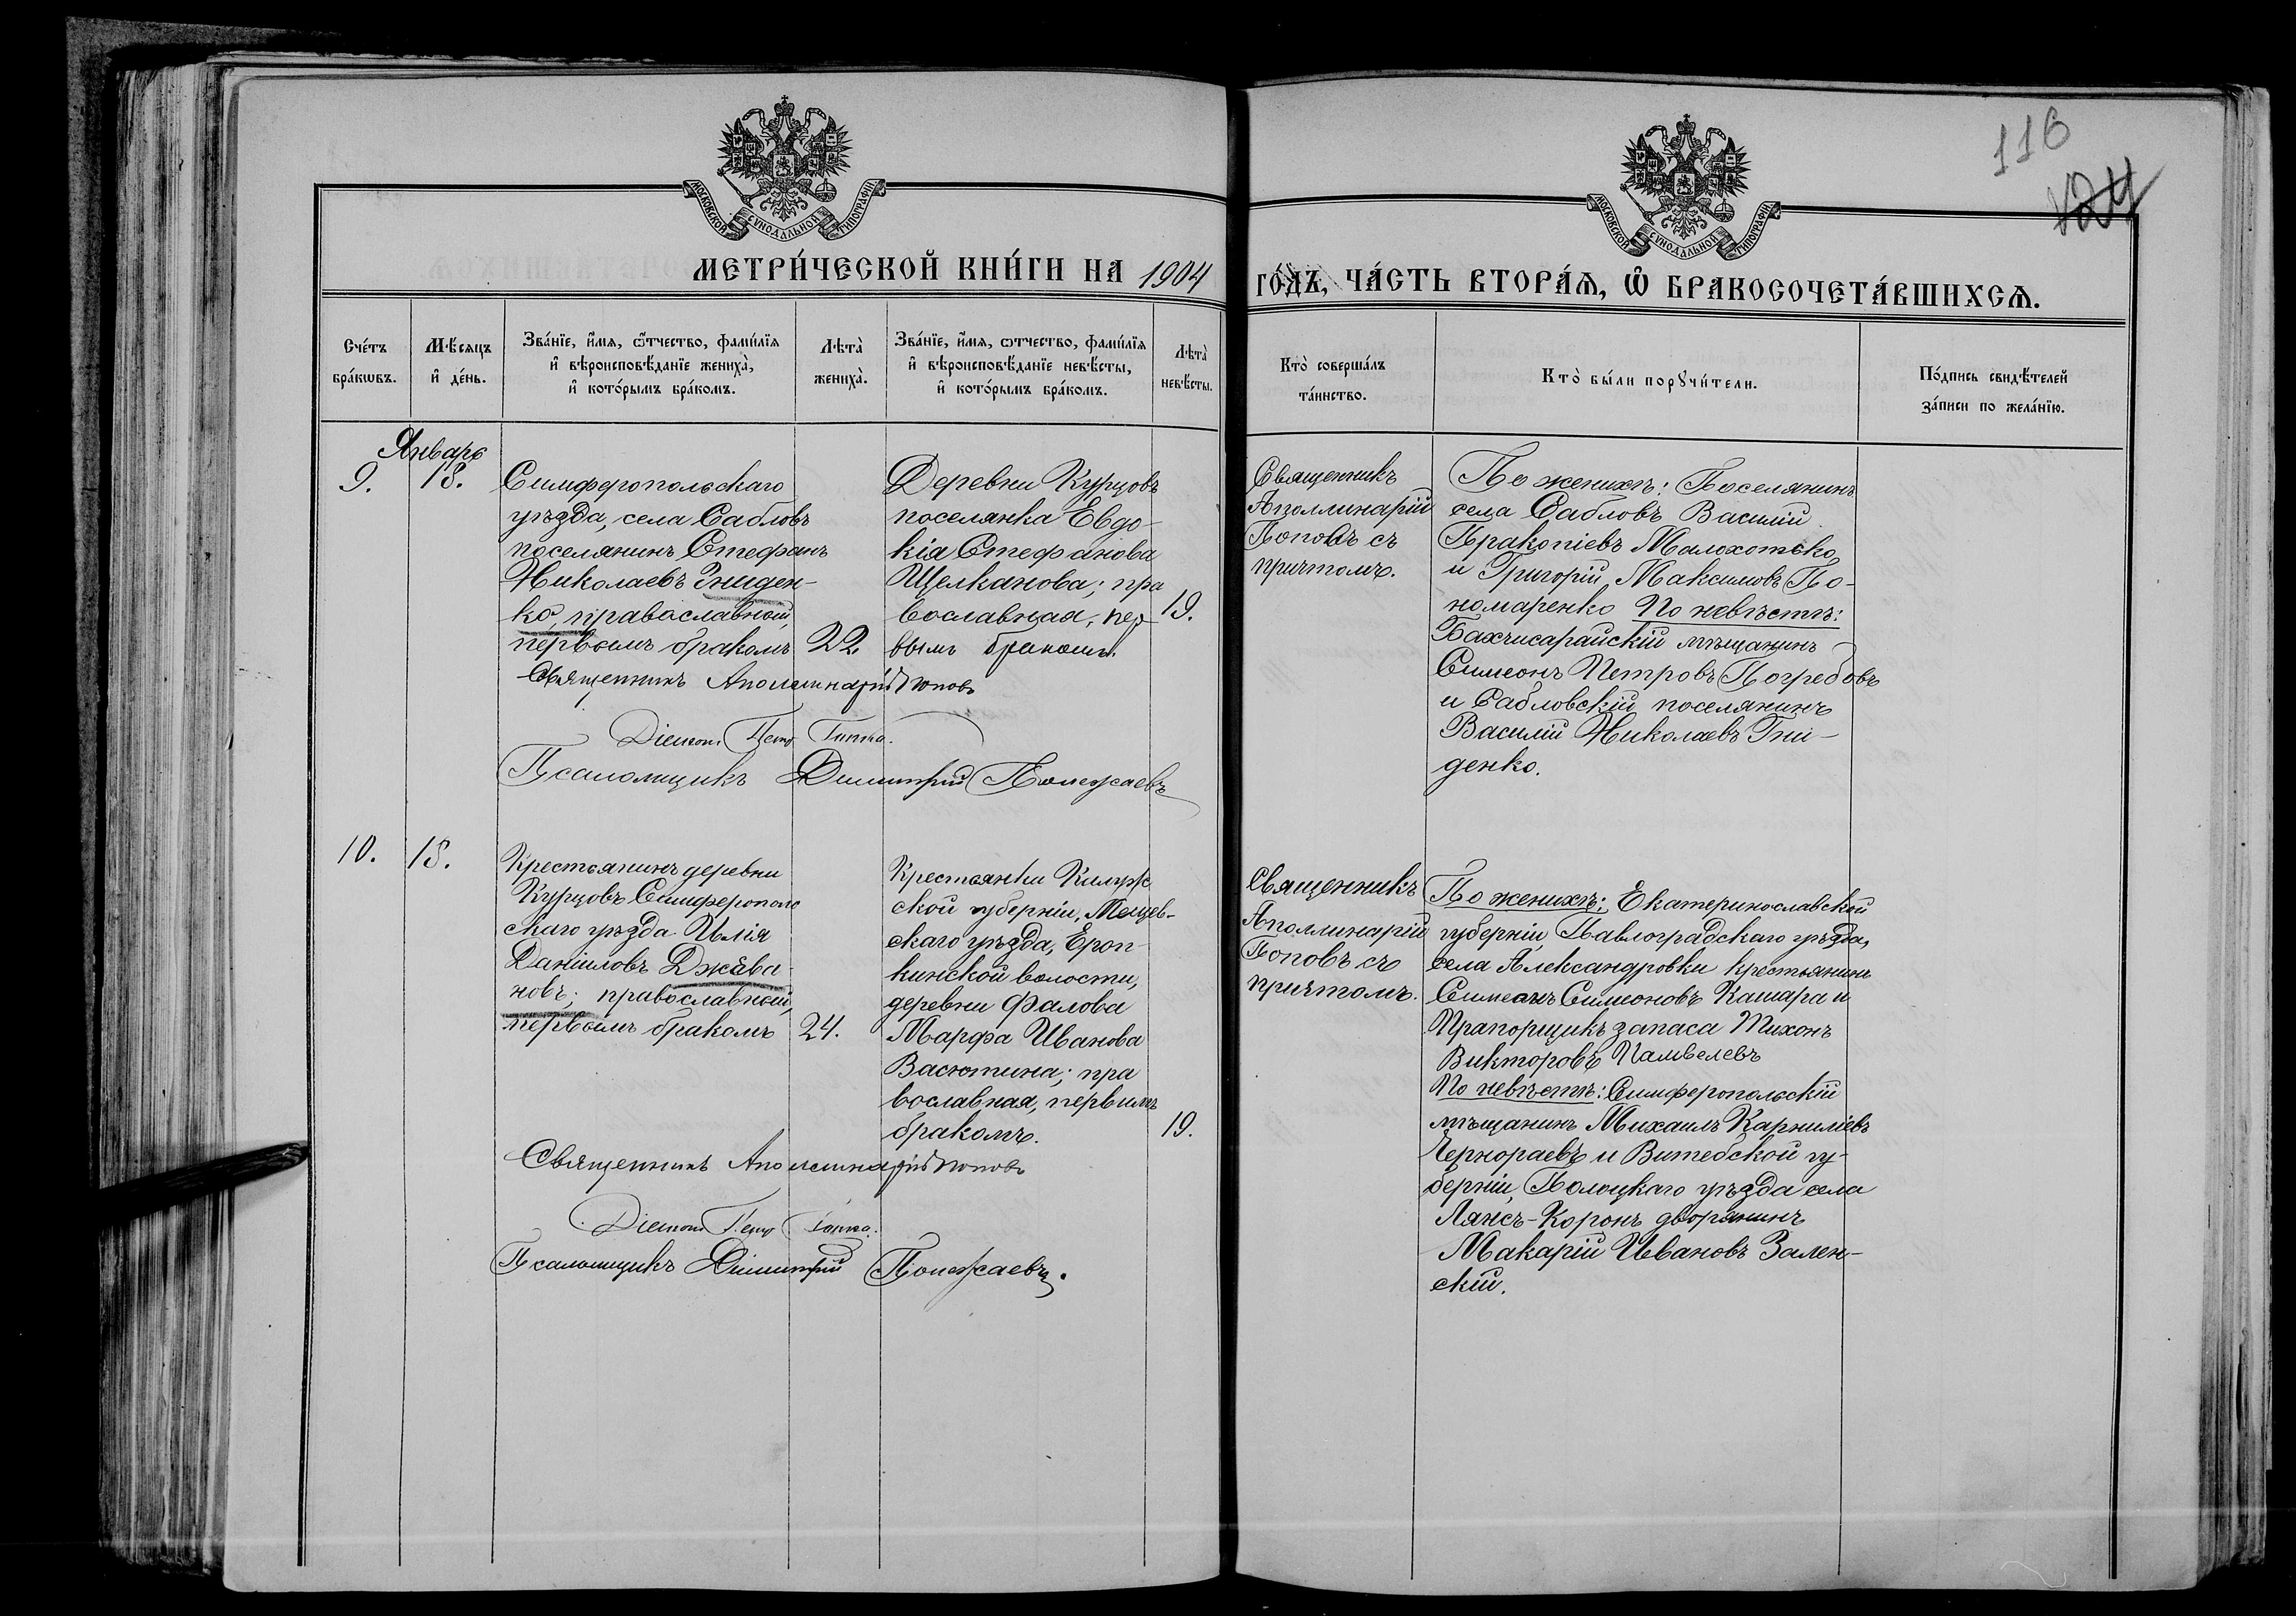 116
124
МОСКОВСКОЙ СУНОДАЛЬНОЙ ТИПОГРАФІИ
МОСКОВСКОЙ СУНОДАЛЬНОЙ ТИПОГРАФІИ
МЕТРИ́ЧЕСКОЙ КНИ́ГИ НА 1904 ГО́ДЪ, ЧА́СТЬ ВТОРА́Ѧ, Ѡ БРАКОСОЧЕТА́ВШИХСѦ.
Сче́тъ
бра́кѡвъ.
Мѣ́сяцъ
и҆ де́нь.
Зва́нїе, и҆́мѧ, ѻ҆́тчество, фамѝлїѧ
и҆ вѣроисповѣ́данїе женихà,
и҆ кото́рымъ бра́комъ.
Лѣтà
женихà.
Зва́нїе, и҆́мѧ, ѻтчество, фамѝлїѧ
и҆ вѣроисповѣ́данїе невѣ́сты,
и҆ кото́рымъ бра́комъ.
Лѣтà
невѣ́сты.
Кто̀ соверша́лъ
та́инство.
Кто̀ бы́ли порꙋчи́тели.
По́дпись свидѣ́телей
за́писи по жела́нїю.
Январь
9.
18.
Симферопольскаго
уѣзда, села Сабловъ
поселянинъ Стефанъ
Николаевъ Гниден-
ко, православный,
первымъ бракомъ
22
Деревни Курцовъ
поселянка Евдо-
кія Стефанова
Щелканова; пра
вославная, пер
вымъ бракомъ.
19.
Священникъ
Аполлинарій
Поповъ съ
причтомъ.
По женихѣ: Поселянинъ
села Сабловъ Василій
Пракопіевъ Малохотько
и Григорій Максимовъ По-
номаренко По невѣстѣ:
Бахчисарайскій мѣщанинъ
Симеонъ Петровъ Погребовъ
и Сабловскій поселянинъ
Василій Николаевъ Гни-
денко.
Священникъ Аполлинарій Поповъ
Діаконъ Петръ
Псаломщикъ Димитрій Полежаевъ
10.
18.
Крестьянинъ деревни
Курцовъ Симферополь
скаго уѣзда Илія
Даніиловъ Джава-
новъ; православный,
первымъ бракомъ
24.
Крестьянки Калуж
ской губерніи, Мещев-
скаго уѣзда, Ероп-
кинской волости,
деревни Фалова
Марфа Иванова
Васютина; пра
вославная, первымъ
бракомъ.
19.
Священникъ
Аполлинарій
Поповъ съ
причтомъ.
По женихѣ: Екатеринославской
губерніи, Павлоградскаго уѣзда,
села Александровки крестьянинъ
Симеонъ Симеоновъ Кашара и
Прапорщикъ запаса Тихонъ
Викторовъ
По невѣстѣ: Симферопольскій
мѣщанинъ Михаилъ Карниліевъ
Чернораевъ и Витебской гу-
берніи, Полоцкаго уѣзда села
Лянсъ-Коронъ дворянинъ
Макарій Ивановъ Зален-
скій.
Священникъ Аполлинарій Поповъ
Діаконъ Петръ
Псаломщикъ Димитрій Полежаевъ.